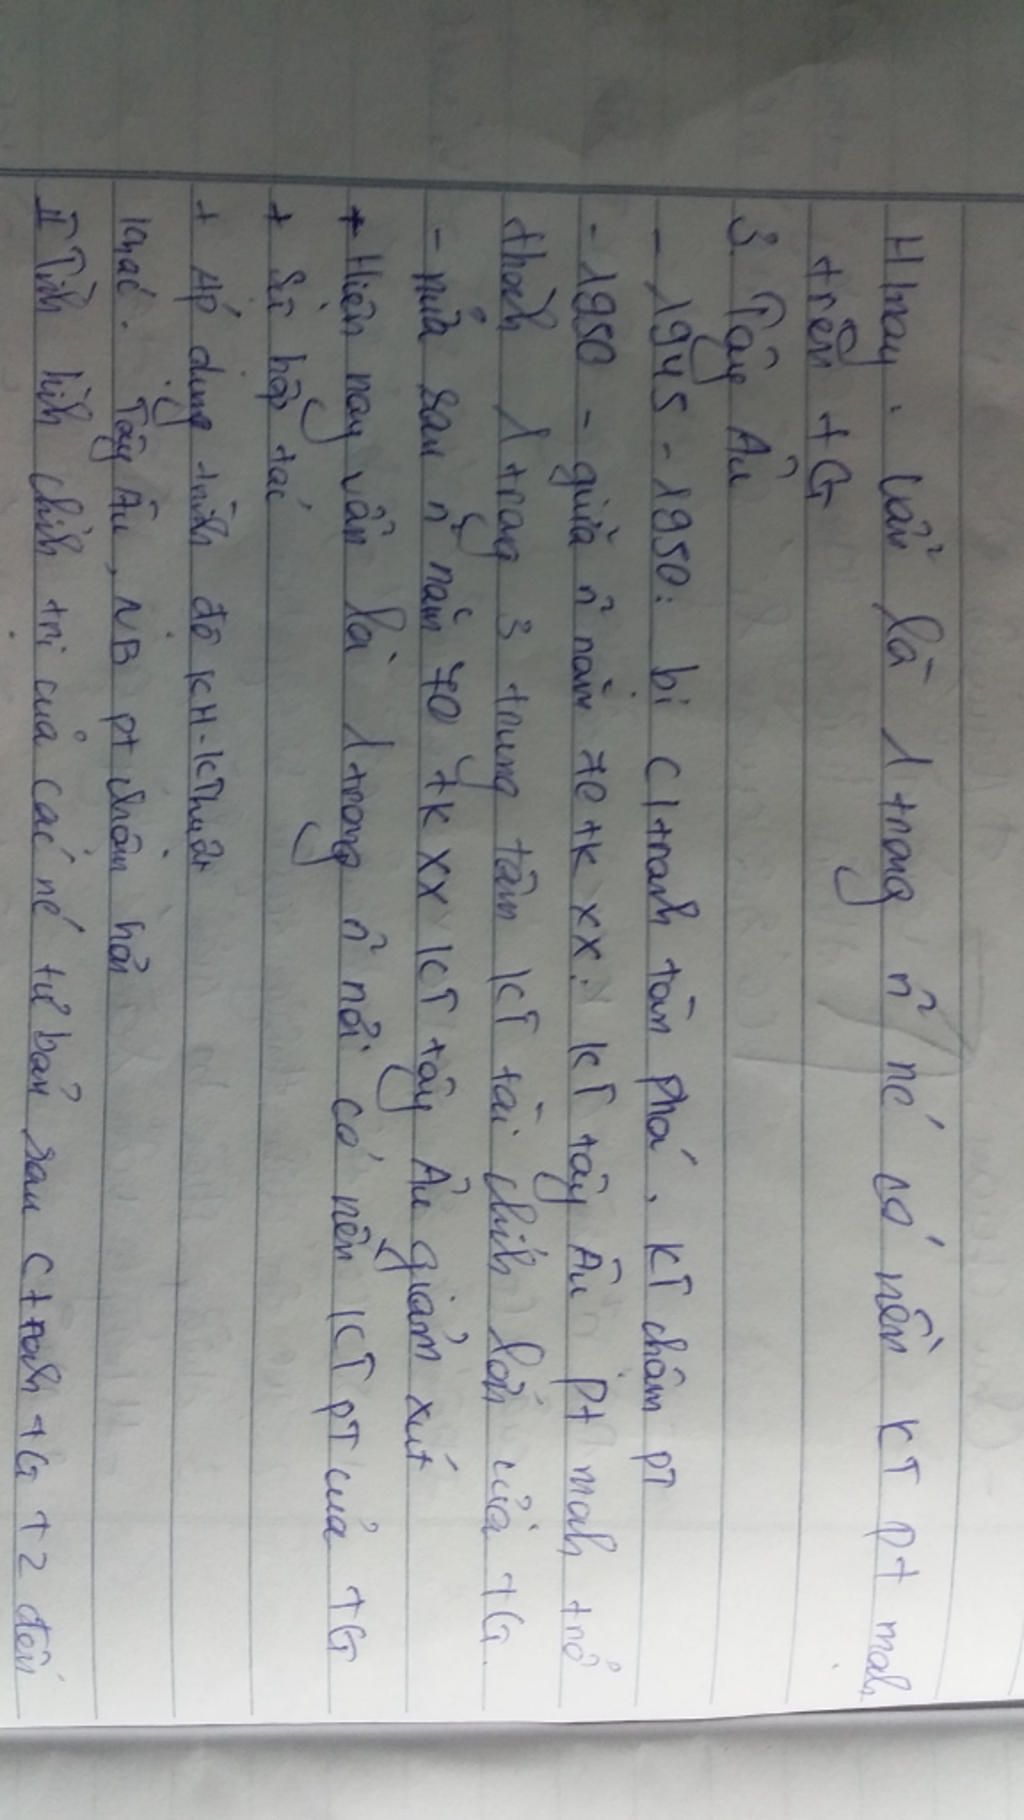 H nay. vẫn là 1 trong n~ nc' có nền KT pt mạh
trên tG
3. Tây Âu
- 1945 - 1950: bị C/tranh tàn phá, KT chậm pT
- 1950 - giữa n~ năm 70 tk XX: KT tây Âu pt mạh trở
thàh 1 trong 3 trung tâm KT tài chíh lớn của tG.
- nửa sau n~ năm 70 tk XX KT tây Âu giảm xút
+ Hiện nay vẫn là 1 trong n~ nới có nền KT pT của tG
+ Sự hợp tác
+ Áp dụng trình độ KH-KThuật
khác. Tây Âu, NB pt chậm hơn
II Tình hìh chíh trị của các nc' tư bản sau C tranh tG t 2 đến